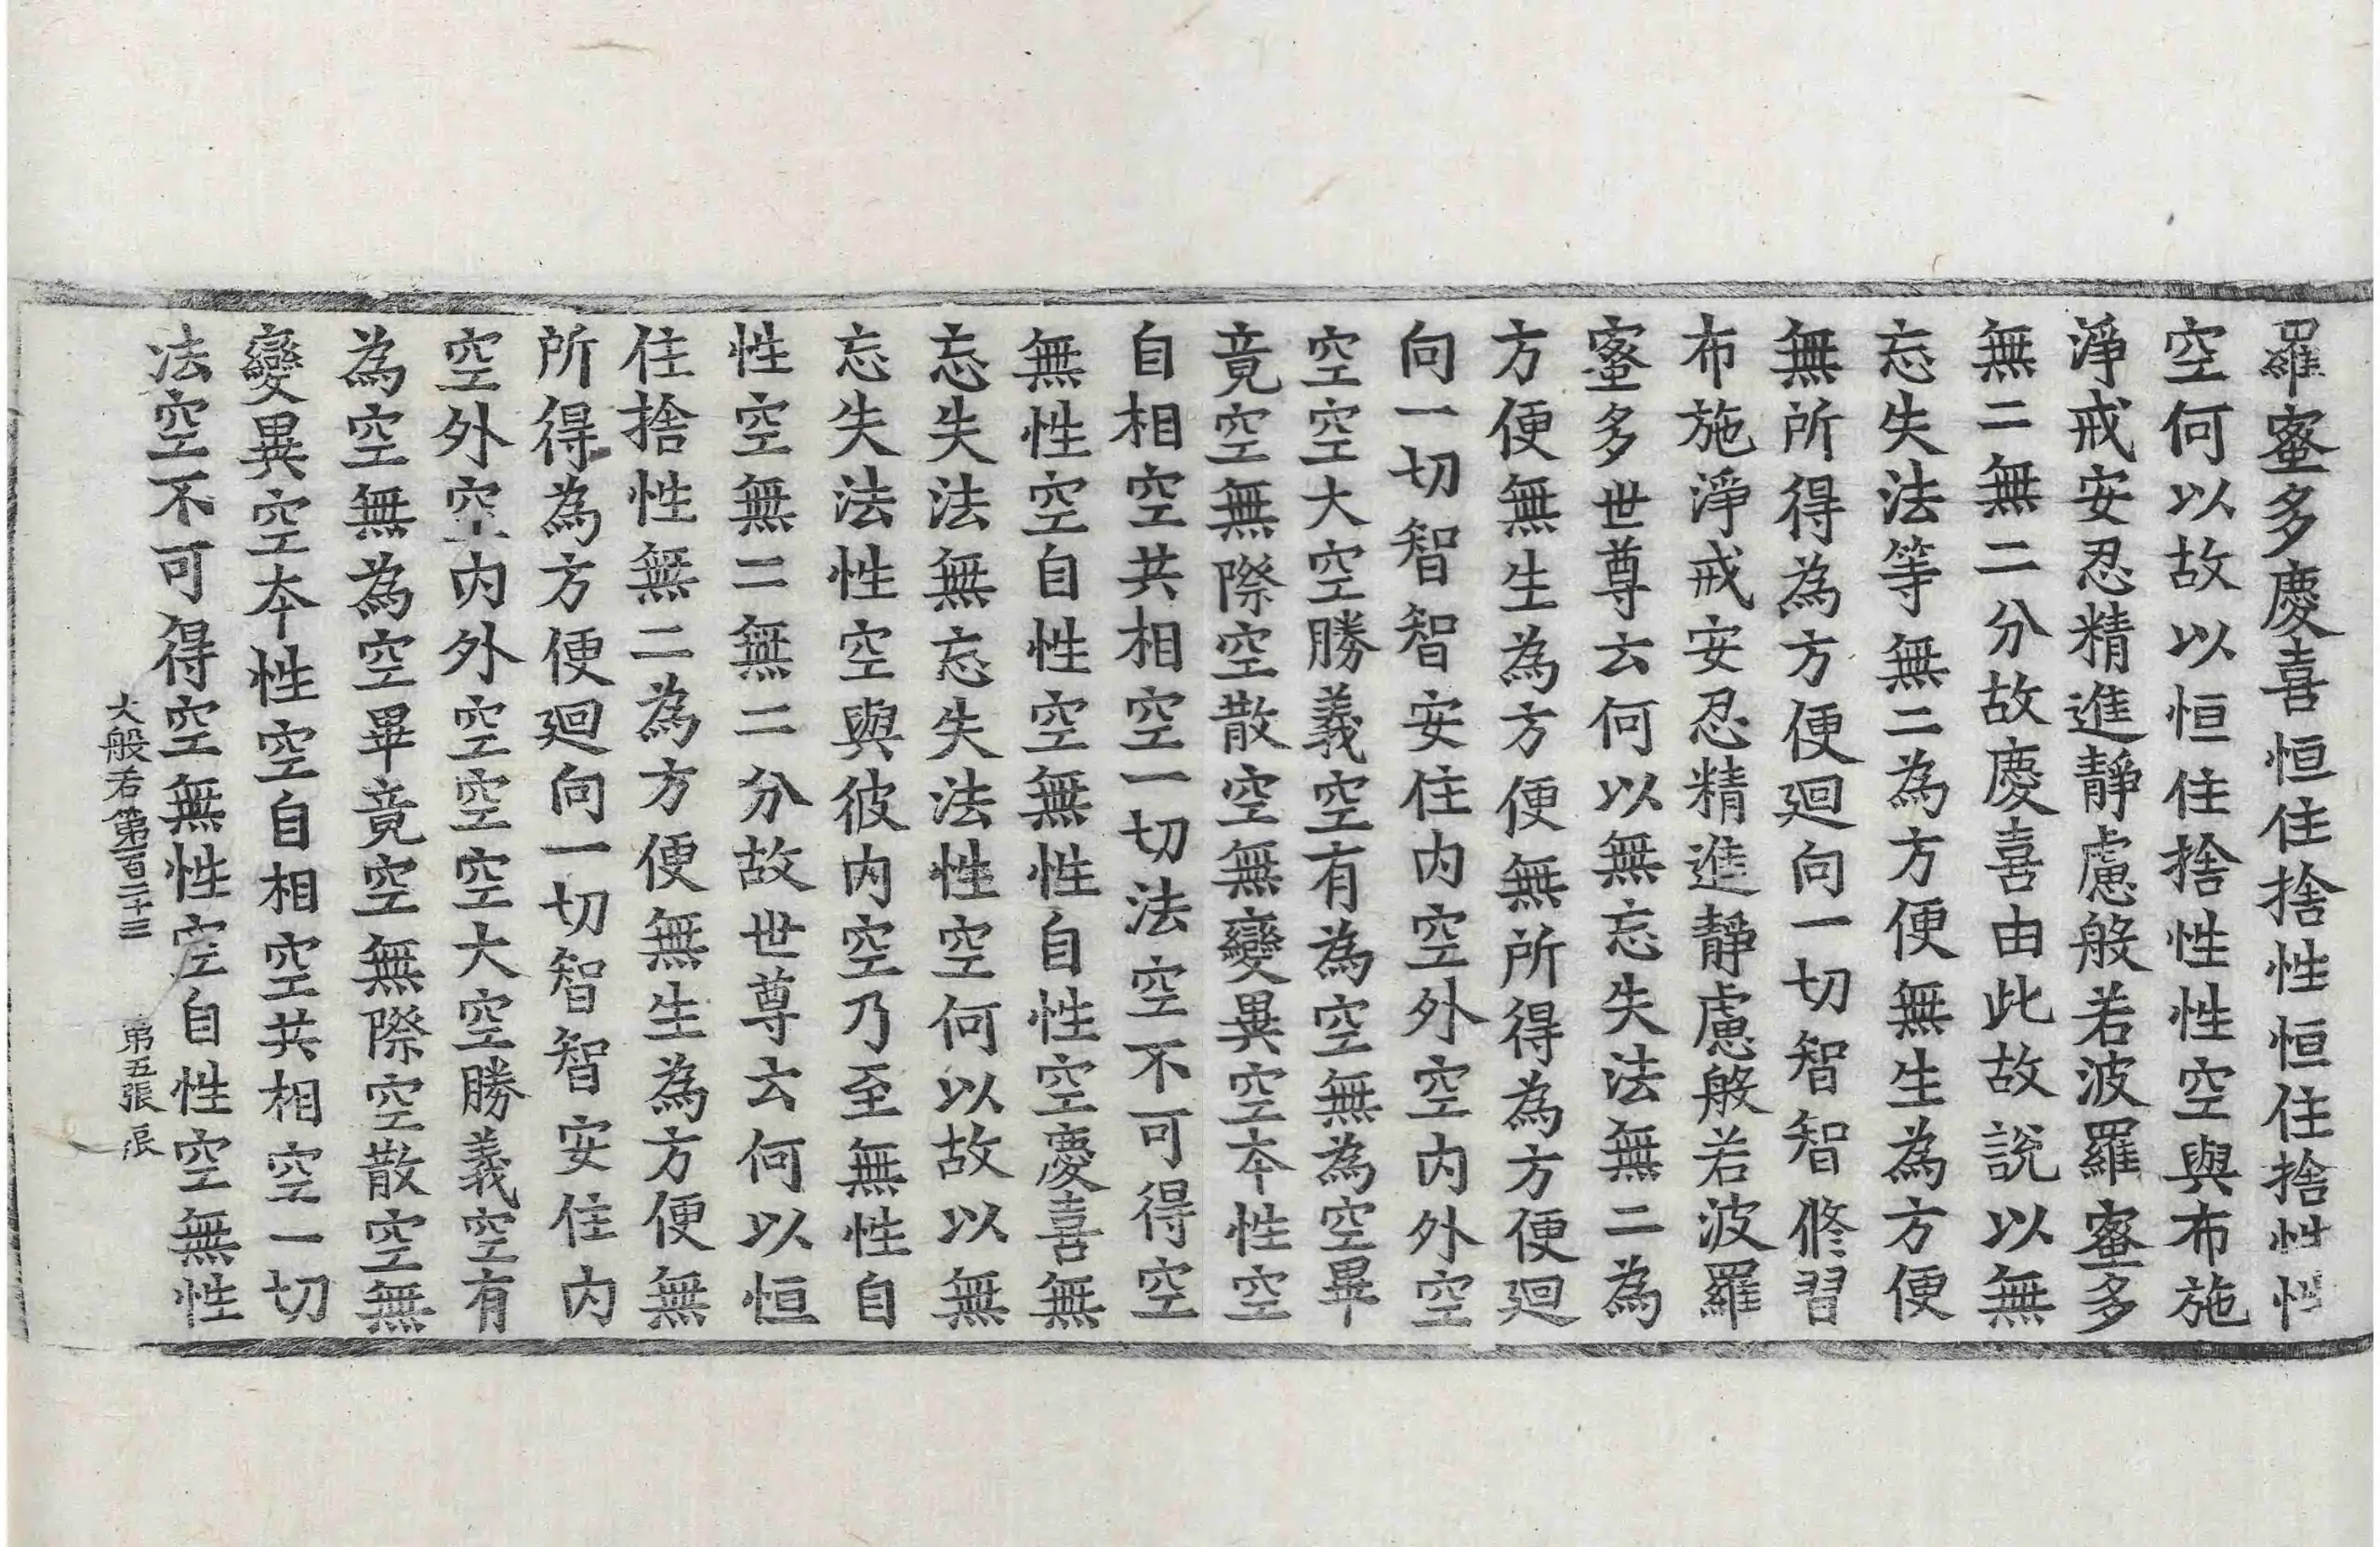 羅蜜多慶喜恒住捨性恒住捨性性
空何以故以恒住捨性性空與布施
淨戒安忍精進靜慮般若波羅蜜多
無二無二分故慶喜由此故說以無
忘失法等無二為方便無生為方便
無所得為方便廻向一切智智修習
布施淨戒安忍精進靜慮般若波羅
蜜多世尊云何以無忘失法無二為
方便無生為方便無所得為方便廻
向一切智智安住內空外空內外空
空空大空勝義空有為空無為空畢
竟空無際空散空無變異空本性空
自相空共相空一切法空不可得空
無性空自性空無性自性空慶喜無
忘失法無忘失法性空何以故以無
忘失法性空與彼內空乃至無性自
性空無二無二分故世尊云何以恒
住捨性無二為方便無生為方便無
所得為方便廻向一切智智安住內
空外空內外空空空大空勝義空有
為空無為空畢竟空無際空散空無
變異空本性空自相空共相空一切
法空不可得空無性空自性空無性
大般若第一百二十三 第五張 辰